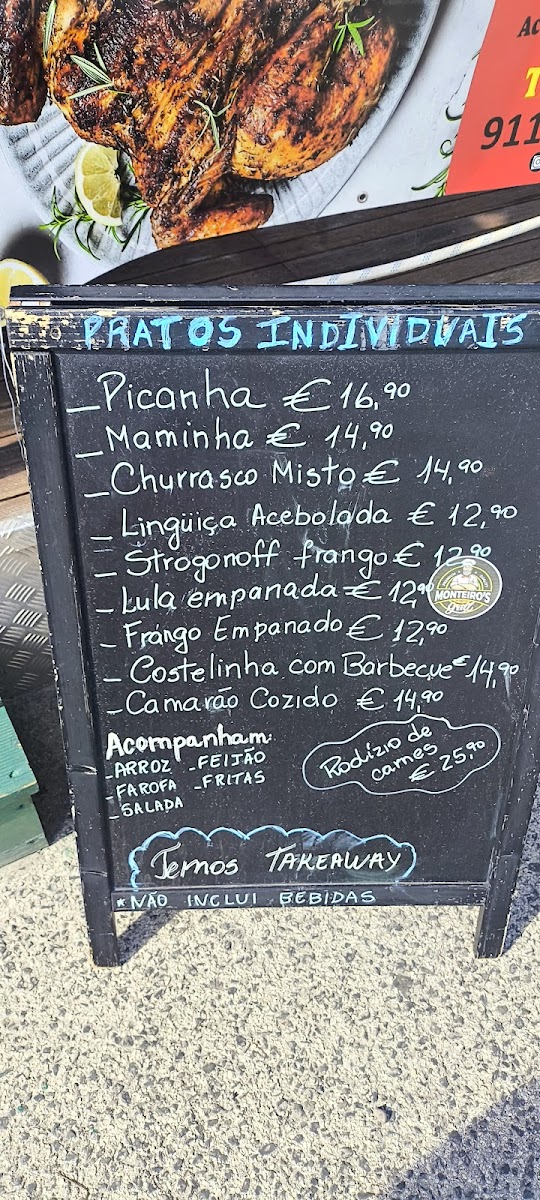 911
PRATOS INDIVIDUAIS
- Picanha € 16,90
- Maminha € 14,90
- Churrasco Misto € 14,90
- Lingüiça Acebolada € 12,90
- Strogonoff frango € 12,90
- Lula empanada € 12,90
MONTEIRO'S
Grill
- Frango Empanado € 12,90
- Costelinha com Barbecue € 14,90
- Camarão Cozido € 14,90
Acompanham:
- ARROZ - FEIJÃO
- FAROFA - FRITAS
- SALADA
Rodízio de
carnes
€ 25,90
Temos TAKEAWAY
*NÃO INCLUI BEBIDAS